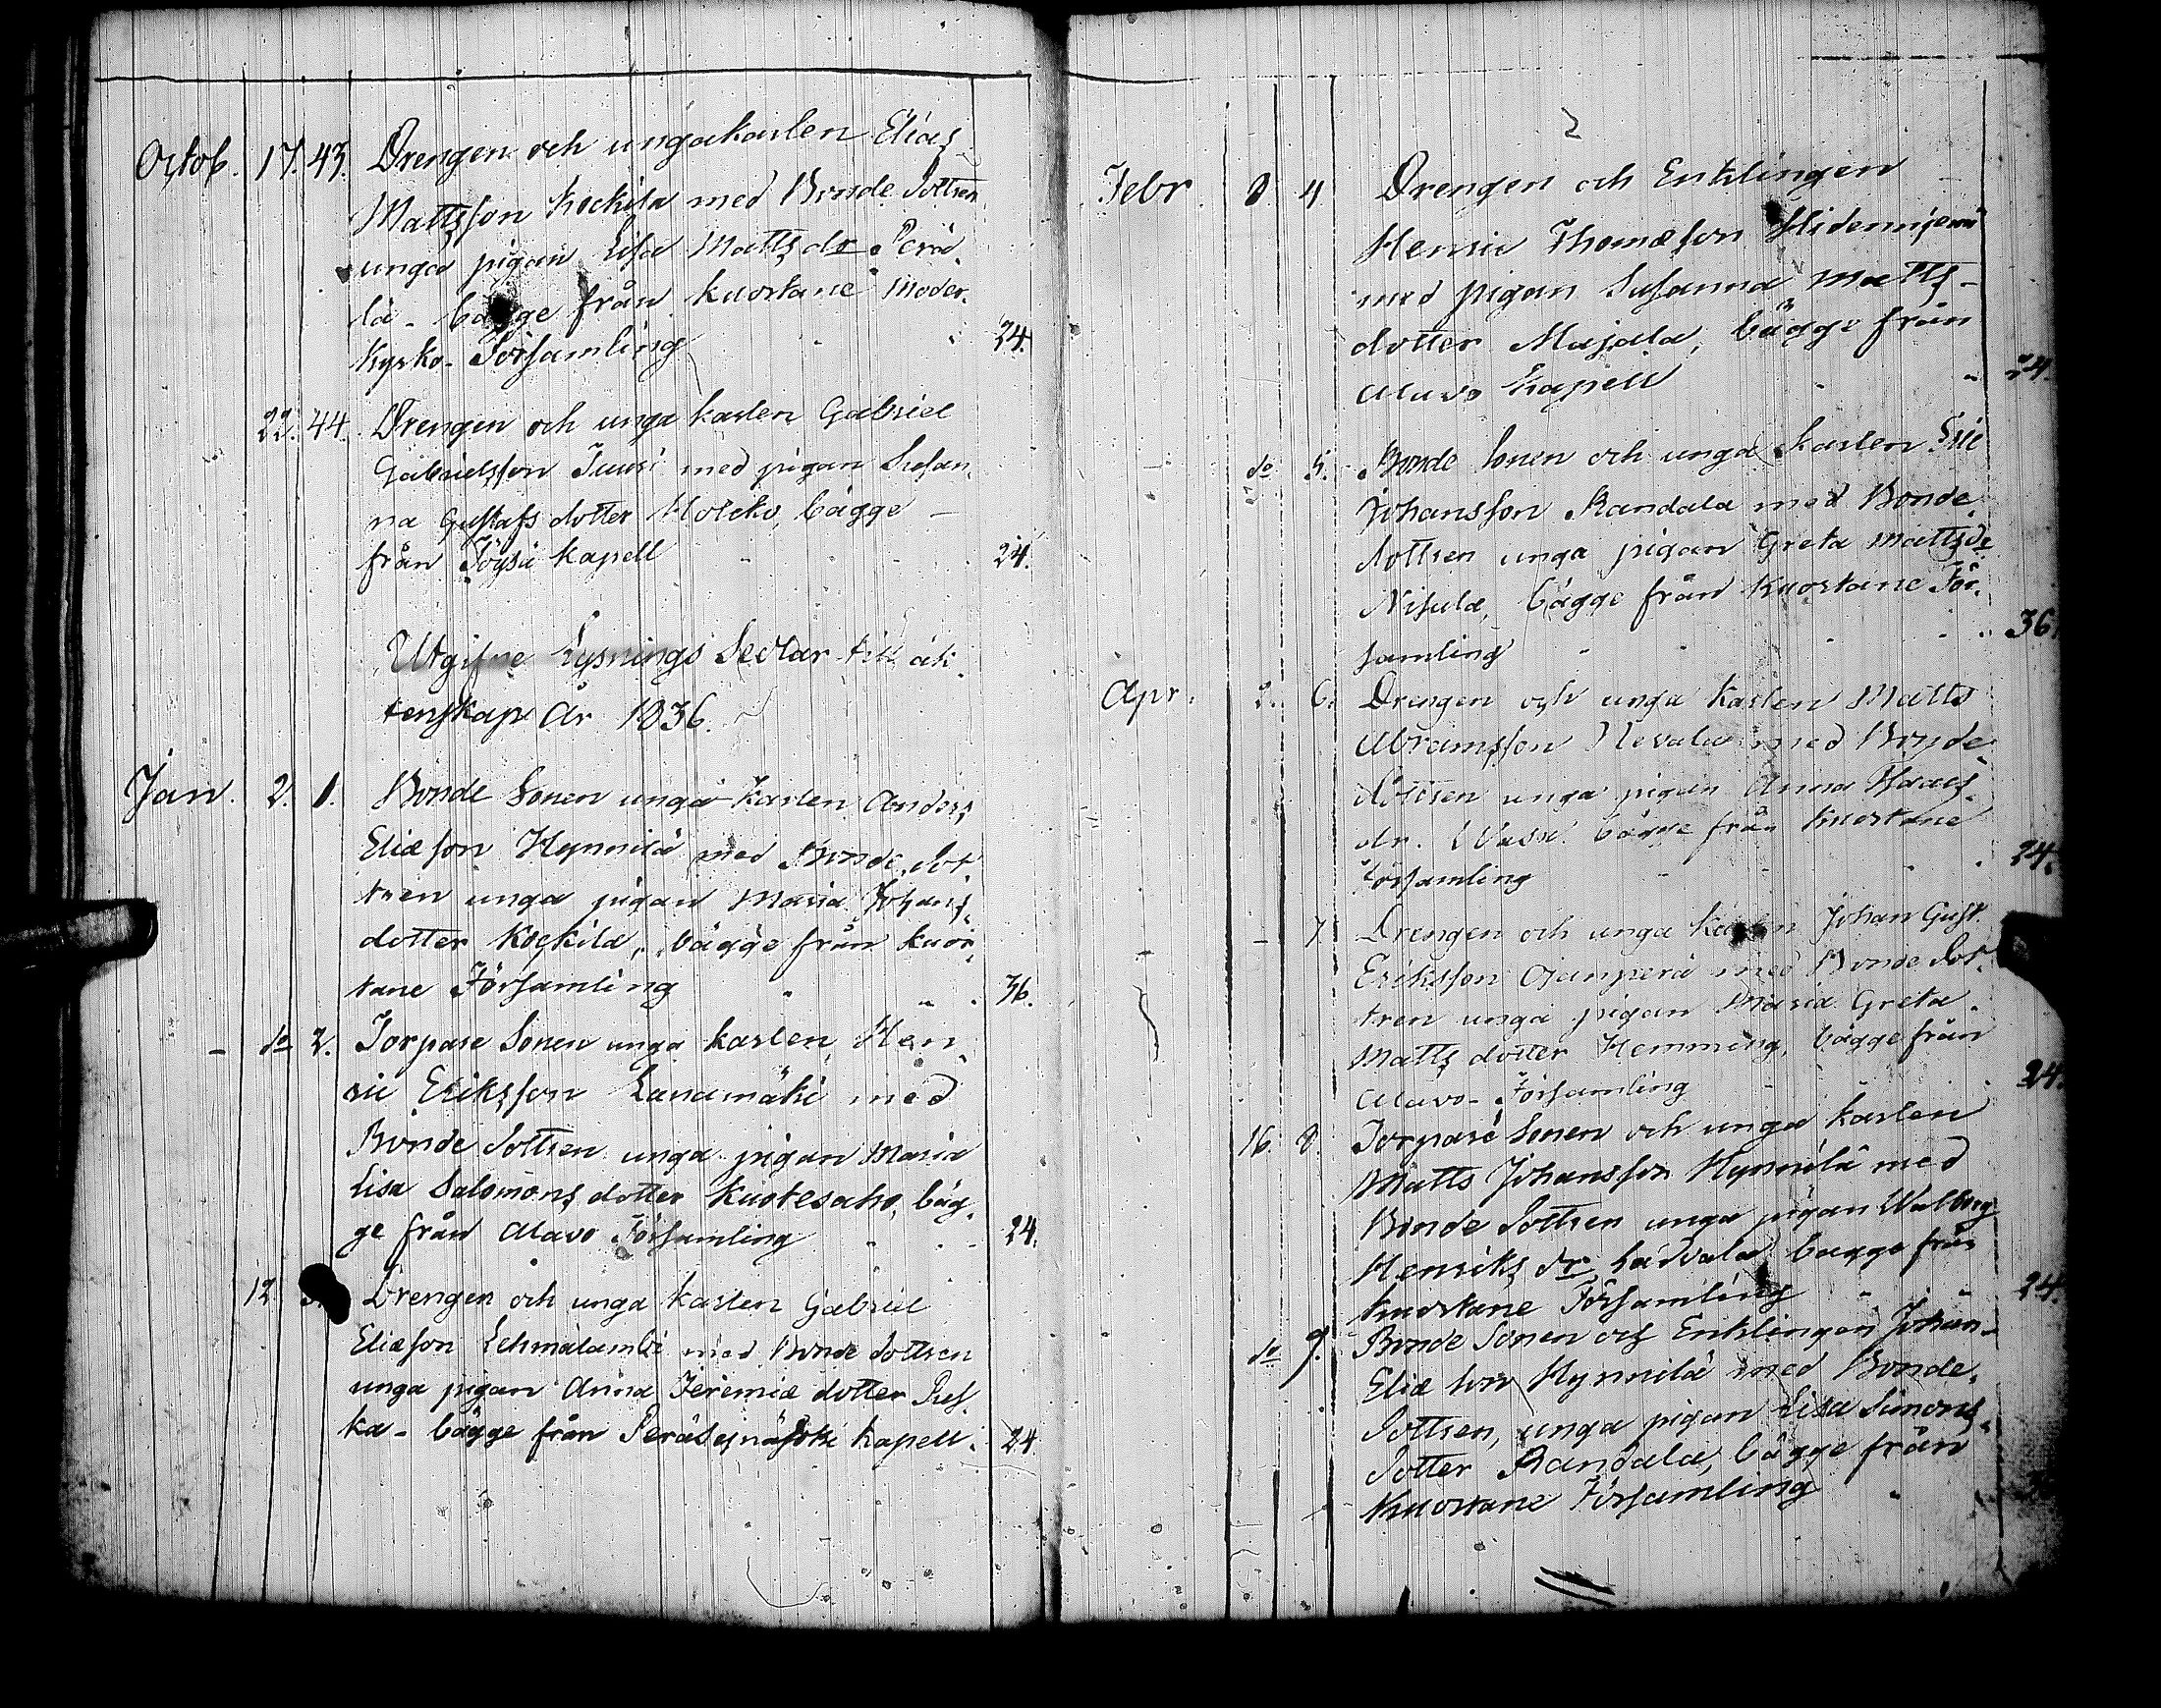 Octob. 17. 43. Drengen och ungakarlen Elias
Mattsson Kockila med Bonde dottren
unga pigan Lisa Matts dr Perä-
lä - bägge från Kuortane Moder-
kyrko-Församling 24.
22. 44. Drengen och unga karlen Gabriel
Gabrielsson Juusi med pigan Susan-
na Gustafs dotter Holcko, bägge
från Töysä kapell 24.
Utgifne Lysnings Sedlar till äk-
tenskap År 1836.
Jan. 2. 1. Bonde Sonen unga Karlen Anders
Eliæson Hynnilä med Bonde dot-
tren unga pigan Maria Johans-
dotter Kockila, bägge från Kuor-
tane Församling 36.
- do 2. Torpare Sonen unga karlen Hen-
ric Eriksson Lanamäki med
Bonde dottren unga pigan Maria
Lisa Salomons dotter Kuotesaho, bäg-
ge från Alavo Församling 24.
12 Drengen och unga Karlen Gabriel
Eliæson Lehmälambi med Bonde dottren
unga pigan Anna Jeremiæ dotter Rus-
ka - bägge från Peräseinäjoki kapell. 24
2
Febr. 8. 4. Drengen och Enklingen
Henric Thomæson
med pigan Susanna Matts-
dotter Majala, bägge från
Alavo Kapell 24.
do 5. Bonde Sonen och unga Karlen Eric
Johansson Randala med Bonde
dottren unga pigan Greta Mattsdr
Nisula, bägge från Kuortane För-
samling 36.
Apr. 2. 6. Drengen och unga Karlen Matts
Abramsson Nevala med Bonde
dottren unga pigan Anna Isaacs
dr. bägge från Kuortane
Församling 24.
- 7 Drengen och unga Karlen Johan Gust.
Eriksson Ojanperä med Bonde dot-
tren unga pigan Maria Greta
Matts dotter Hemming, bägge från
Alavo - Församling 24.
16. 8. Torpare Sonen och unga karlen
Matts Johansson Hynnilä med
Bonde dottren unga pigan Walborg
Henriks dr bägge från
Kuortane Församling 24.
do 9. Bonde Sonen och Enklingen Johan
Eliæ son Hynnilä med Bonde
dottren, unga pigan Lisa Simons
dotter Randala, bägge från
Kuortane Församling